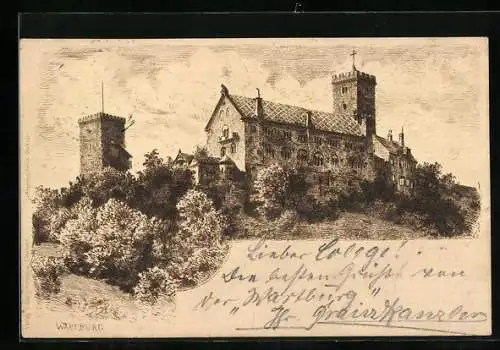 Lieber College!
Die besten Grüße von
der "Wartburg"
Ihr
WARTBURG